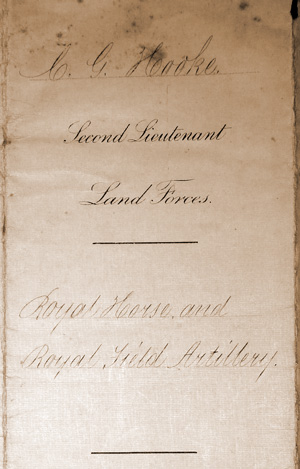 G. Hooke.
Second Lieutenant
Land Forces.
Royal Horse and
Royal Field Artillery.